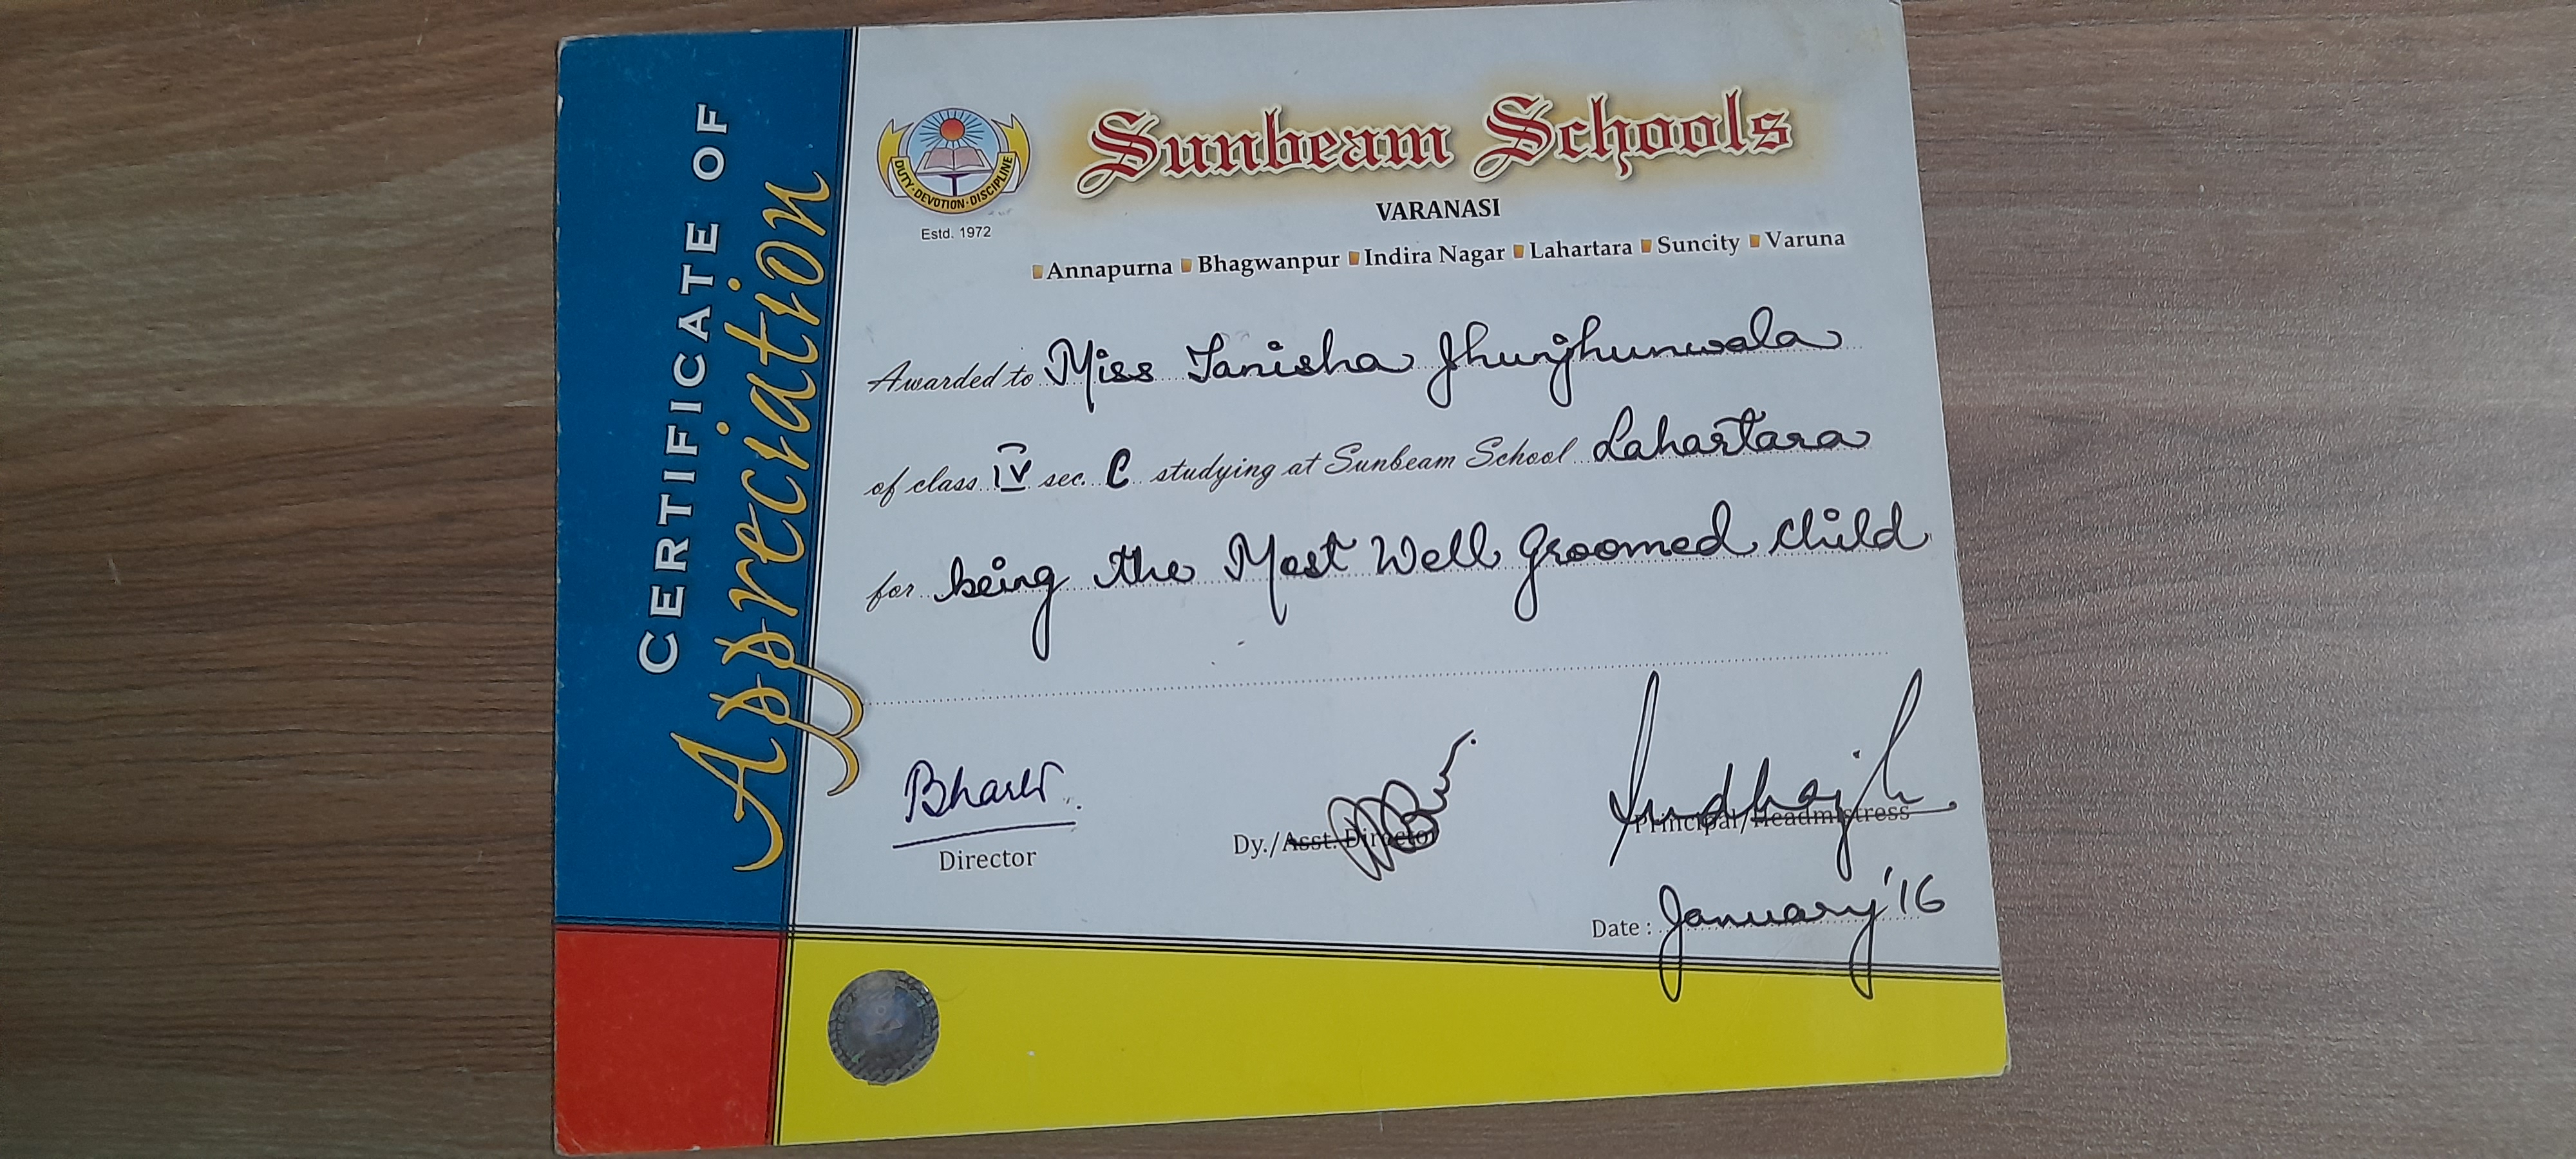 CERTIFICATE OF
Appreciation
DUTY · DEVOTION · DISCIPLINE
Estd. 1972
Sunbeam Schools
VARANASI
Annapurna Bhagwanpur Indira Nagar Lahartara Suncity Varuna
Awarded to Miss Tanisha Jhunjhunwala
of class IV sec. C studying at Sunbeam School Lahartara
for being the Most Well Groomed Child
Director
Dy./Asst. Director
Principal/Headmistress
Date : January '16